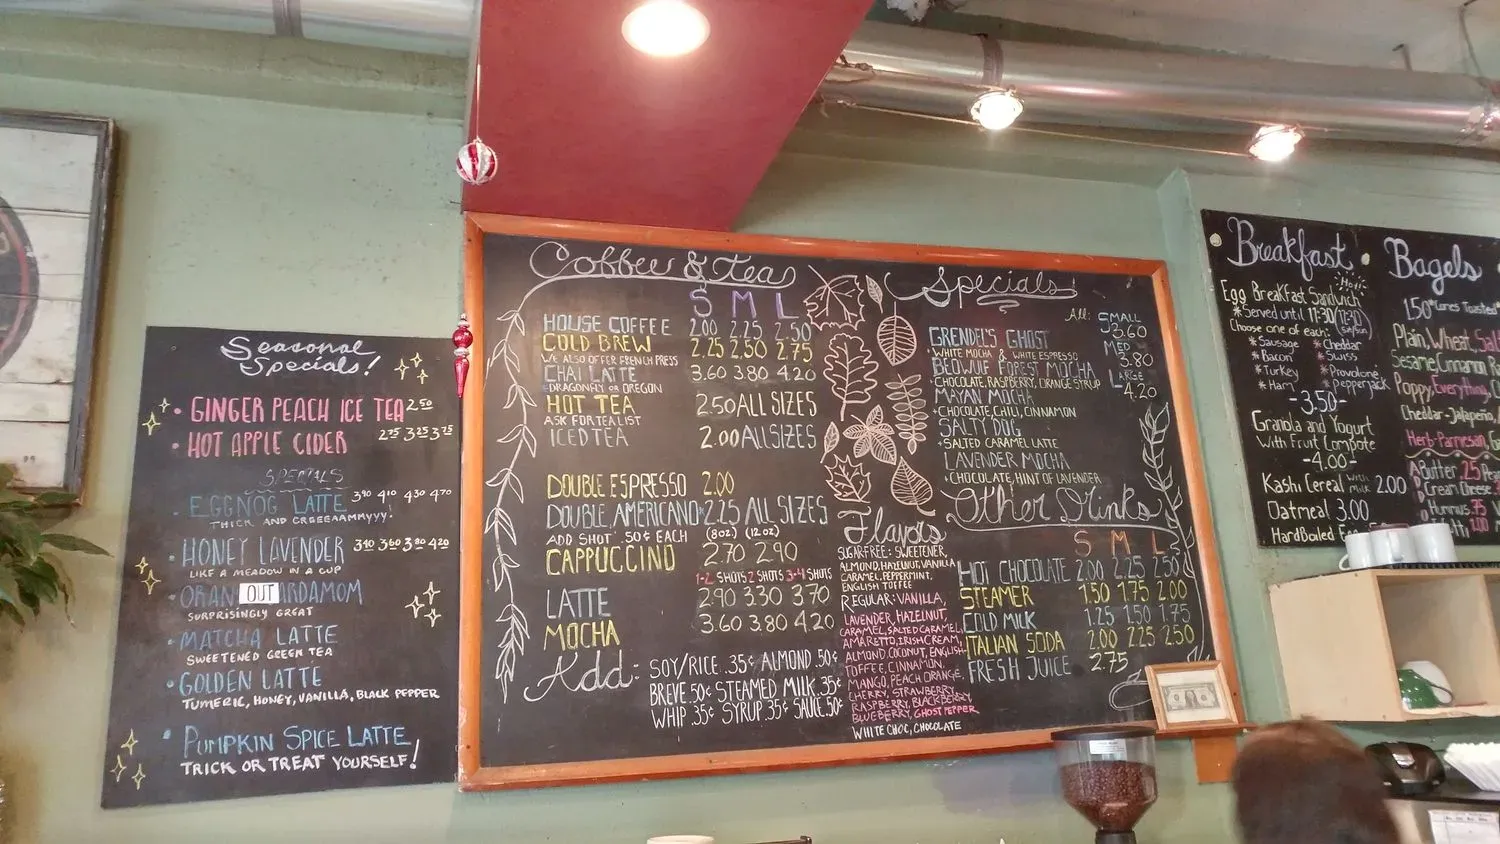 Seasonal
Specials!
GINGER PEACH ICE TEA 2.50
HOT APPLE CIDER 2.75 3.25 3.75
SPECIALS
EGGNOG LATTE 3.90 4.10 4.30 4.70
THICK AND CREEEAAMMYYY!
HONEY LAVENDER 3.40 3.60 3.80 4.20
LIKE A MEADOW IN A CUP
ORAN OUT ARDAMOM
SURPRISINGLY GREAT
MATCHA LATTE
SWEETENED GREEN TEA
GOLDEN LATTE
TUMERIC, HONEY, VANILLA, BLACK PEPPER
PUMPKIN SPICE LATTE
TRICK OR TREAT YOURSELF!
Coffee & Tea
S M L
HOUSE COFFEE 2.00 2.25 2.50
COLD BREW 2.25 2.50 2.75
WE ALSO OFFER FRENCH PRESS
CHAI LATTE 3.60 3.80 4.20
DRAGONFLY OR OREGON
HOT TEA 2.50 ALL SIZES
ASK FOR TEA LIST
ICED TEA 2.00 ALL SIZES
DOUBLE ESPRESSO 2.00
DOUBLE AMERICANO 2.25 ALL SIZES
ADD SHOT .50¢ EACH (8oz) (12oz)
CAPPUCCINO 2.70 2.90
1-2 SHOTS 2 SHOTS 3-4 SHOTS
LATTE 2.90 3.30 3.70
MOCHA 3.60 3.80 4.20
Add: SOY/RICE .35¢ ALMOND .50¢
BREVE .50¢ STEAMED MILK .35¢
WHIP .35¢ SYRUP .35¢ SAUCE .50¢
Specials
All: SMALL
3.60
MED
3.80
LARGE
4.20
GRENDEL'S GHOST
WHITE MOCHA & WHITE ESPRESSO
BEOWULF FOREST MOCHA
CHOCOLATE, RASPBERRY, ORANGE SYRUP
MAYAN MOCHA
CHOCOLATE, CHILI, CINNAMON
SALTY DOG
SALTED CARAMEL LATTE
LAVENDER MOCHA
CHOCOLATE, HINT OF LAVENDER
Flavors
SUGARFREE: SWEETENER,
ALMOND, HAZELNUT, VANILLA
CARAMEL, PEPPERMINT,
ENGLISH TOFFEE
REGULAR: VANILLA,
LAVENDER, HAZELNUT,
CARAMEL, SALTED CARAMEL,
AMARETTO, IRISH CREAM,
ALMOND, COCONUT, ENGLISH
TOFFEE, CINNAMON,
MANGO, PEACH, ORANGE,
CHERRY, STRAWBERRY,
RASPBERRY, BLACKBERRY
BLUEBERRY, GHOST PEPPER
WHITE CHOC, CHOCOLATE
Other Drinks
S M L
HOT CHOCOLATE 2.00 2.25 2.50
STEAMER 1.50 1.75 2.00
COLD MILK 1.25 1.50 1.75
ITALIAN SODA 2.00 2.25 2.50
FRESH JUICE 2.75
Breakfast
Egg Breakfast Sandwich
*Served until 11:30
Choose one of each:
*Sausage *Cheddar
*Bacon *Swiss
*Turkey *Provolone
*Ham *Pepperjack
-3.50-
Granola and Yogurt
With Fruit Compote
-4.00-
Kashi Cereal with Milk 2.00
Oatmeal 3.00
HardBoiled
Bagels
1.50 Toasted
Plain, Wheat,
Sesame, Cinnamon
Poppy, Everything,
Cheddar-Jalapeño,
Herb-Parmesan,
Butter .25
Cream Cheese
Hummus .75
1.00